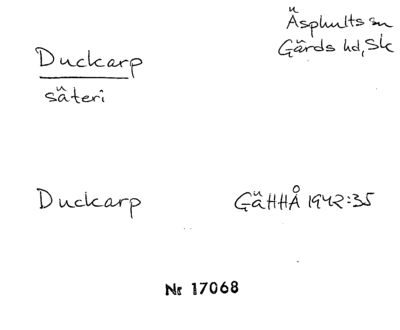 Äsphults sn
Gärds hd, Sk
Duckarp
säteri
Duckarp GäHHÅ 1942:35
Nr 17068